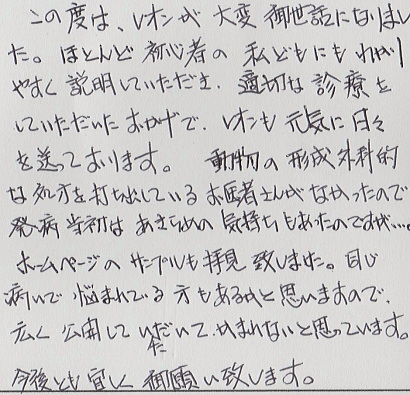 この度は、レオンが大変御世話になりまし
た。ほとんど初心者の私どもにもわかり
やすく説明していただき、適切な診療を
していただいたおかげで、レオンも元気に日々
を送っております。動物の形成外科的
な処方を打ち出しているお医者さんがなかったので
発病当初はあきらめの気持ちもあったのですが…。
ホームページのサンプルも拝見致しました。同じ
病いで悩まれている方もあるかと思いますので、
広く公開していただいてかまわないと思っています。
今後とも宜しく御願い致します。